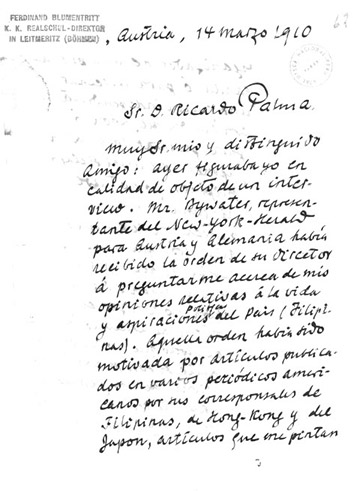 FERDINAND BLUMENTRITT
K. K. REALSCHUL-DIREKTOR
IN LEITMERITZ (BÖHMEN)
, Austria, 14 Marzo 1910
Sr. D. Ricardo Palma.
Muy Sr. mio y distinguido
Amigo: ayer figuraba yo en
calidad de objeto de un inter-
view. Mr. Bywater, represen-
tante del New-York-Herald
para Austria y Alemania habia
recibido la orden de su Director
á preguntarme acerca de mis
opiniones relativas á la vida
y aspiraciones del Pais (Filipi-
nas). Aquella orden habia sido
motivada por articulos publica-
dos en varios periódicos ameri-
canos por sus corresponsales de
Filipinas, de Hong-Kong y del
Japon, articulos que me pintan